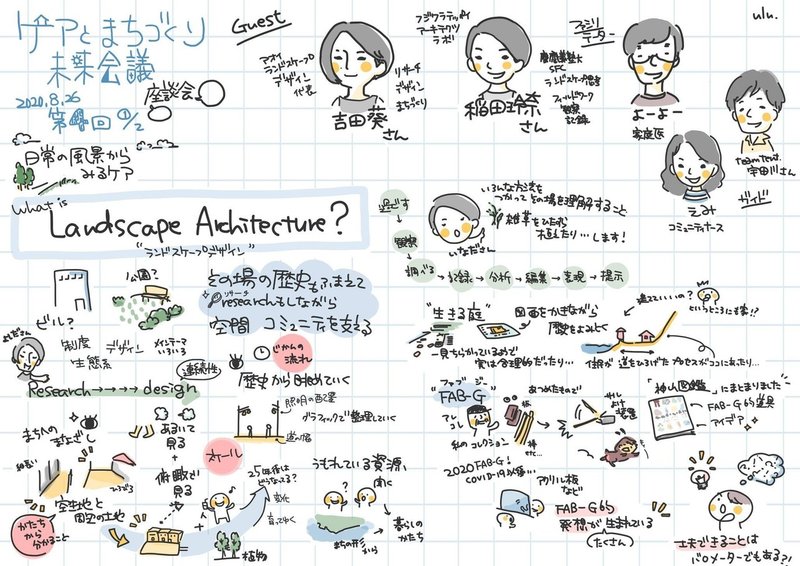 ケアとまちづくり
未来会議
2020.8.26
座談会
第4回 1/2
日常の風景から
みるケア
Guest
アオイ
ランドスケープ
デザイン
代表
リサーチ
デザイン
まちづくり
吉田葵
さん
フジワラテッペイ
アーキテクツ
ラボ
慶應義塾大
SFC
フィールドワーク
観察
記録
稲田玲奈
さん
ファシリ
テーター
よーよー
家庭医
ulu.
えみ
コミュニティナース
team tent.
宇田川さん
ガイド
what is
Landscape Architecture?
"ランドスケープデザイン"
ビル?
公園?
その場の歴史もふまえて
リサーチ
researchもしながら
空間 コミュニティを支える
よしださん
制度
生態系
デザイン
メインテーマ
いろいろ
連続性
Research → → → → design
じかんの
流れ
歴史から眺めていく
照明の配置
グラフィックで整理していく
道の幅
まち人の
まなざし
細い
空き地と
周辺の土地
かたち
から
分かること
あるいて
見る
+
俯瞰で
見る
スケール
25年後は
どうなってる?
変化
育ってゆく
植物
うもれている資源
聞く
まちの形から
暮らしの
かたち
過ごす
観察
調べる
→記録→分析→編集→表現→提示
いなださん
いろんな方法を
つかってその場を理解すること
雑草をひたすら
植えたり…します!
"生きる庭"
図面をかきながら
歴史をよみとく
一見ちらかっているようで
実は合理的だったり…
違えていいの?
というところにも案!?
住民が道をひろげたプロセスがココにあったり…
"ファブジー"
FAB-G
アレ
コレ
私のコレクション
あつめたもので
板
棒
etc…
サル
よけ
装置
「神山図鑑」にまとまりました
FAB-G的道具
アイデア
2020 FAB-G!
COVID-19以降…
アクリル板
など
FAB-G的
発想が生まれている
たくさん
工夫できることは
バロメーターでもある?!